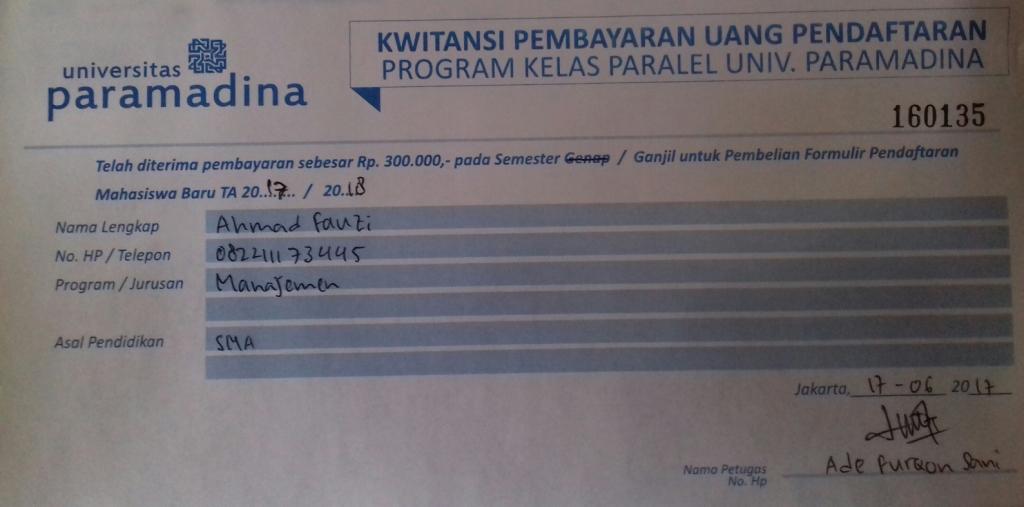 universitas
paramadina
KWITANSI PEMBAYARAN UANG PENDAFTARAN
PROGRAM KELAS PARALEL UNIV. PARAMADINA
160135
Telah diterima pembayaran sebesar Rp. 300.000,- pada Semester Genap / Ganjil untuk Pembelian Formulir Pendaftaran
Mahasiswa Baru TA 20..17.. / 20..18
Nama Lengkap Ahmad Fauzi
No. HP / Telepon 082211173445
Program / Jurusan Manajemen
Asal Pendidikan SMA
Jakarta, 17 - 06 2017
Nama Petugas Ade Furqon Sani
No. Hp